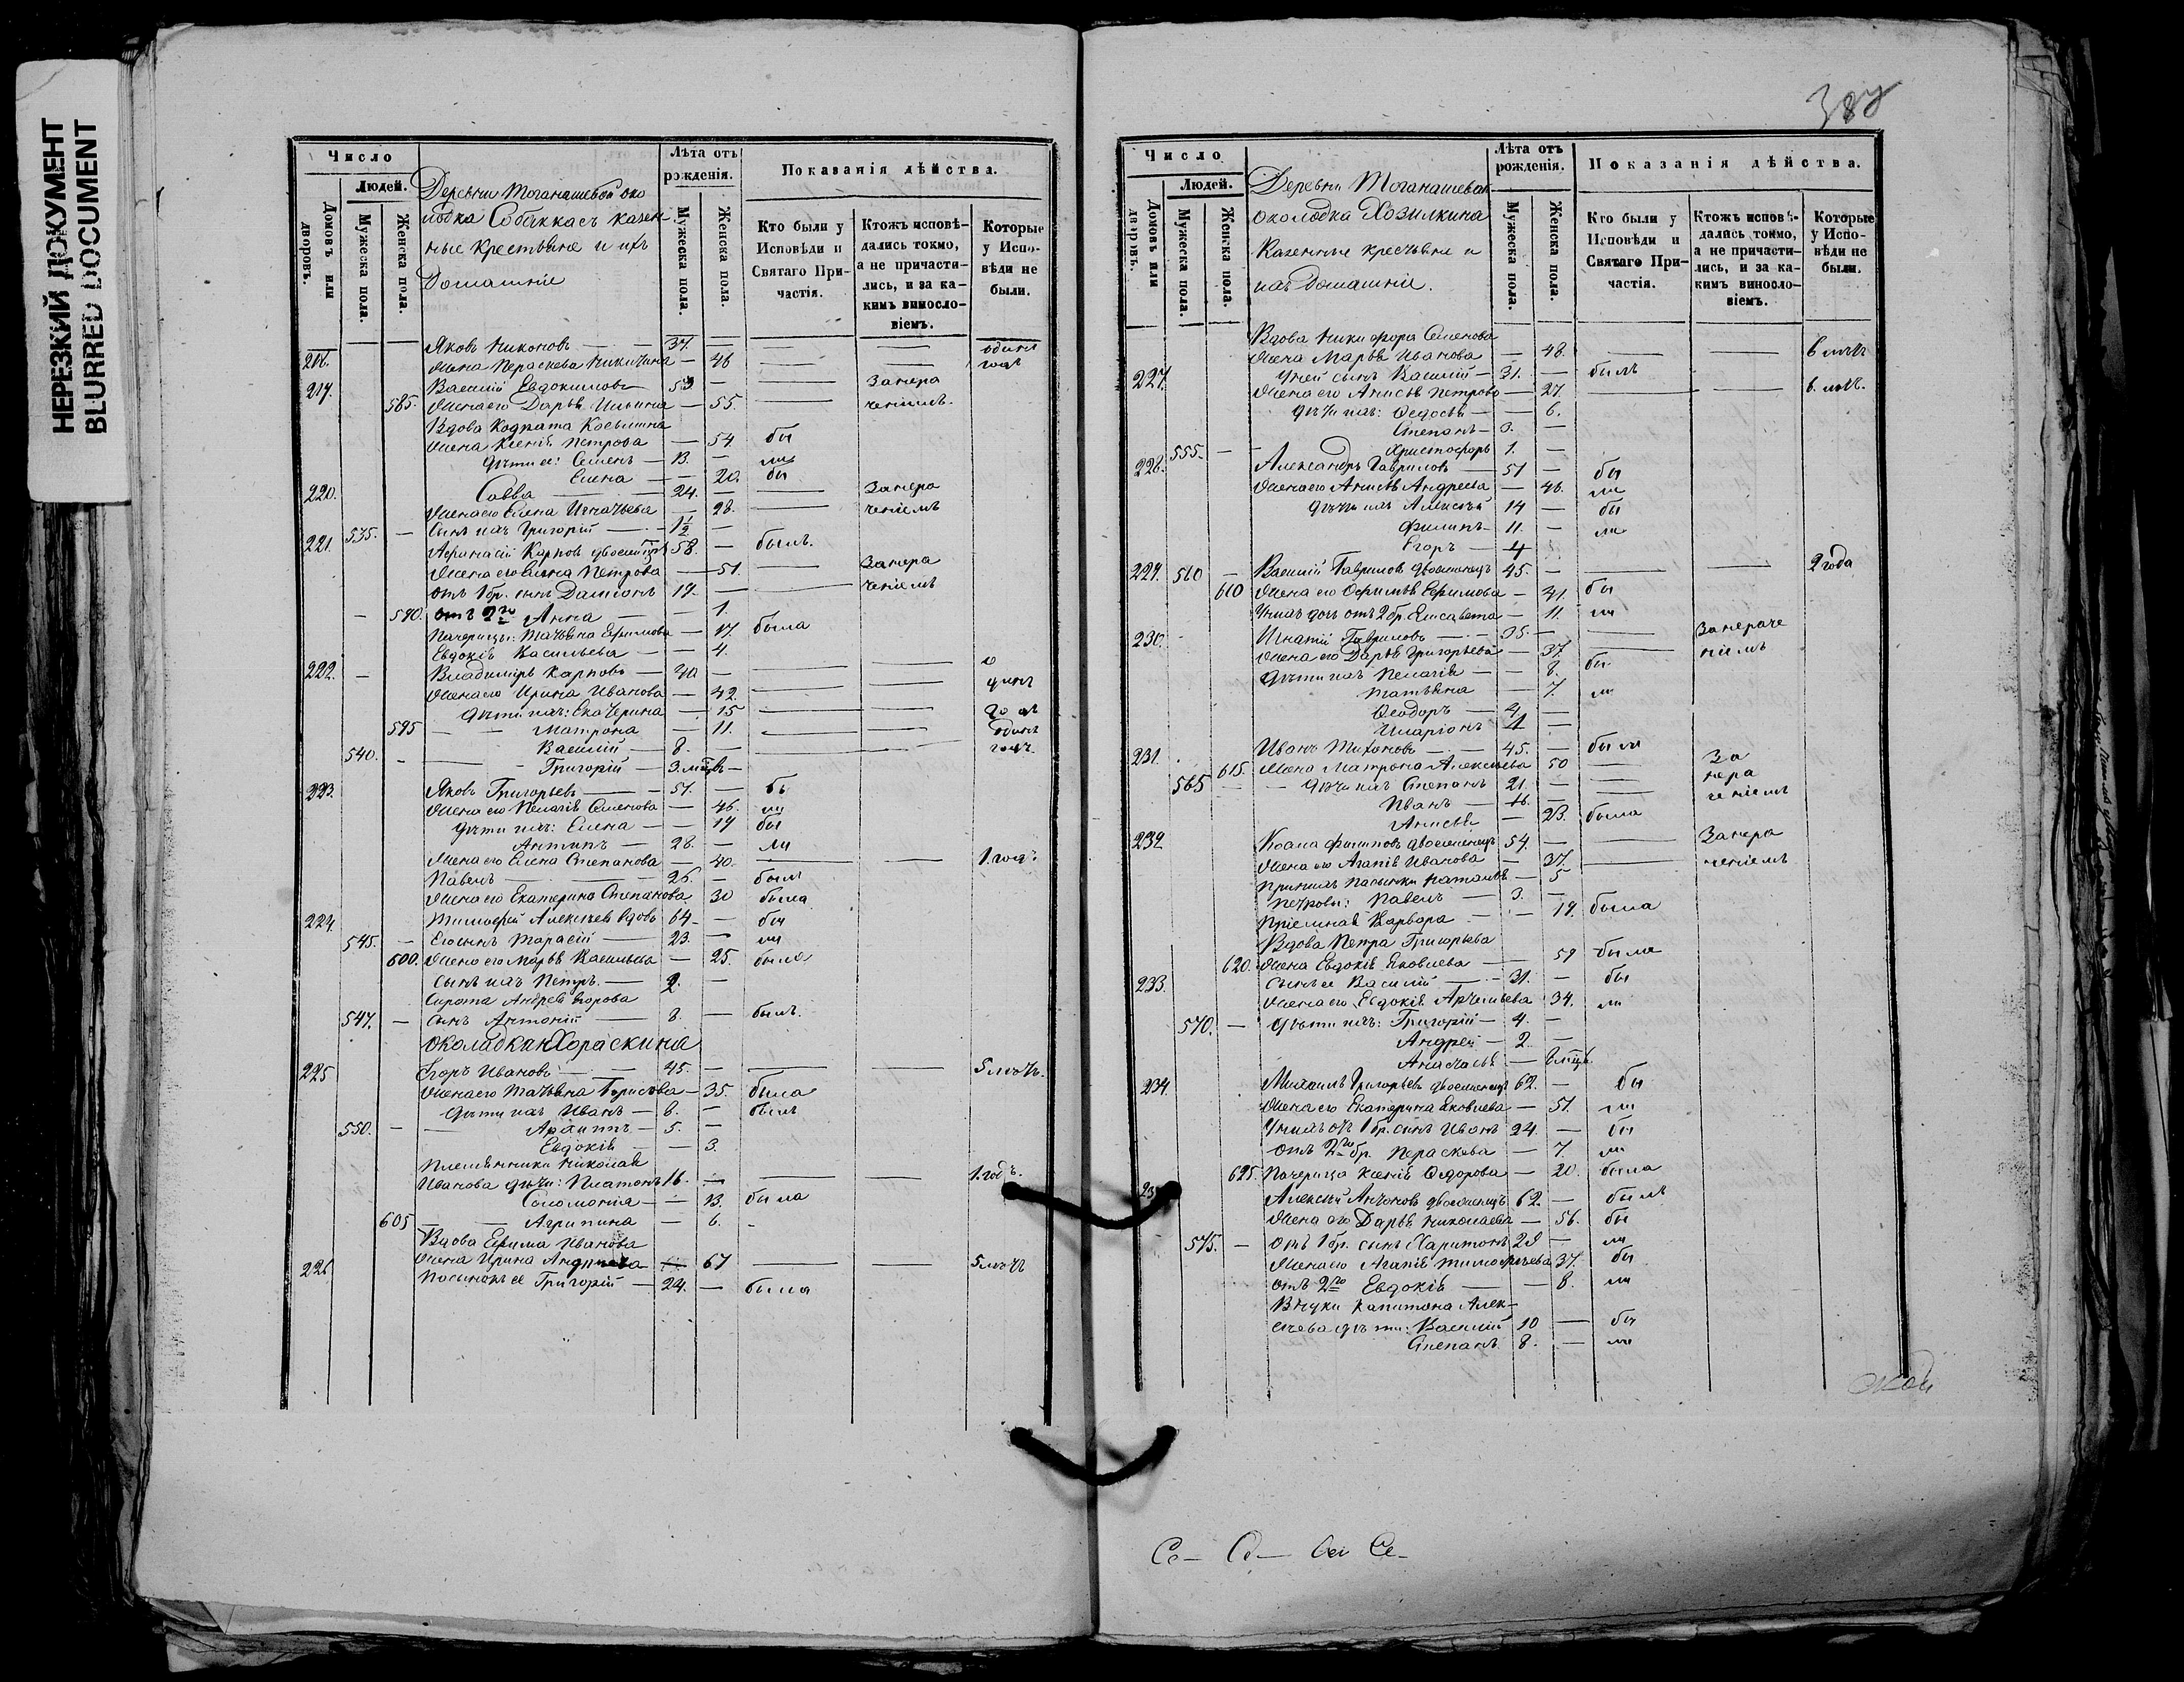 НЕРЕЗКИЙ ДОКУМЕНТ
BLURRED DOCUMENT
Число
Людей.
Домовъ или дворовъ.
Мужеска пола.
Женска пола.
Деревни Тоганашевой око
лодка Собаккасъ казен
ные крестьяне и ихъ
Домашніе
Лѣта отъ рожденія.
Мужеска пола.
Женска пола.
Показанія дѣйства.
Кто были у Исповѣди и Святаго Причастія.
Ктожъ исповѣдались токмо, а не причастились, и за какимъ винословіемъ.
Которые у Исповѣди не были.
Яковъ Никоновъ — 37. — — — одинъ
Жена Параскева Никитина — 46 — — годъ
217. Василій Евдокимовъ 53 — — Занера
585. Жена его Дарья Ильина — 55. — ченіемъ.
Вдова Кодрата Косьмина
Жена Ксенія Петрова — 54 бы
Дѣти ее: Семенъ — 13. — ли
Елена — — 20. бы
220. Савва — 24. — — Занера
Жена его Елена Игнатьева — 28. — ченіемъ
535. — Сынъ ихъ Григорій — 1½ —
221. Афанасій Карповъ двоеженецъ 58. — былъ.
Жена его Анна Петрова — 51. — Занера
отъ 1 бр. сынъ Даміанъ 19. — — ченіемъ
— 590. отъ 2го Анна — — 1.
Падчерицы: Татьяна Ефимова — 17. была
Евдокія Васильева — — 4.
222. — Владиміръ Карповъ — 40 — — — о
Жена его Ирина Иванова — 42. — — динъ
Дѣти ихъ: Екатерина — 15 — — годъ
595 — — Матрона — 11. — — одинъ
540. — Василій — 8. — — годъ.
Григорій — 3.мѣцъ —
223. Яковъ Григорьевъ — 51. — бы
Жена его Пелагія Семенова — 46. ли
Дѣти ихъ: Елена — — 19 бы
Антипъ — 28. — ли
Жена его Елена Степанова — 40. — — 1.годъ
Павелъ — 26. — былъ
Жена его Екатерина Степанова 30 была
224. Тимофей Алексѣевъ вдовъ 64. — бы
545. — Его сынъ Тарасій — 23. — ли
600. Жена его Марья Васильева — 25. была
Сынъ ихъ Петръ. — 2. —
Сирота Андрея Егорова
547. — сынъ Антоній — 8. — былъ.
околадкинХораскина
225 Егоръ Ивановъ — 45. — — — 5 лѣтъ.
Жена его Татьяна Борисова — 35. была
Дѣти ихъ Иванъ — 8. — былъ
550. — — Архиппъ — 5. —
Евдокія — — 3.
Племянники Николая
Иванова дѣти: Платонъ 16. — — — 1.годъ.
Соломонія — — 13. была
605 — — Агрипина — 6. —
Вдова Ефима Иванова
226 Жена Ирина Андреева — 67 — — 5 лѣтъ
Пасынокъ ее Григорій — 24. — была
387
Число
Людей.
Домовъ или дворовъ.
Мужеска пола.
Женска пола.
Деревни Тоганашевой
околодка Хозилкина
Казенные крестьяне и
ихъ Домашніе.
Лѣта отъ рожденія.
Мужеска пола.
Женска пола.
Показанія дѣйства.
Кто были у Исповѣди и Святаго Причастія.
Ктожъ исповѣдались токмо, а не причастились, и за какимъ винословіемъ.
Которые у Исповѣди не были.
Вдова Никифора Семенова
Жена Марья Иванова — 48. — — 6 лѣтъ
227. У ней сынъ Василій — 31. — былъ
Жена его Анисья Петрова — 27. — — 6. лѣтъ.
Дѣти ихъ: Федосья — — 6.
Степанъ — 3. —
555. — — Христофоръ 1. —
228. Александръ Гавриловъ — 51 — бы
Жена его Анисья Андреева — 46. ли
Дѣти ихъ Алексѣй 14 — бы
Филипъ — 11. — ли
Егоръ — 4
229. 560 — Василій Гавриловъ двоеженецъ 45. — — — 2 года
610 Жена его Офимья Ефимова — 41. бы
У нихъ дочь отъ 2 бр. Елисавета — 11. ли
230. Игнатій Гавриловъ — 35. — — Занераче
Жена его Дарья Григорьева — 37. — ніемъ
Дѣти ихъ Пелагія — — 8. бы
Татьяна — 7. ли
Феодоръ — 4 —
Иларіонъ 1 —
231. Иванъ Тихоновъ — 45. — были
615. Жена Матрона Алексѣева 50 — За
565 — — Дѣти ихъ Степанъ 21. — — нера
Иванъ — 16. — — ченіемъ
Анисья — 23. была
232. Козма Филиповъ двоеженецъ 54. — — Занера
Жена его Агапія Иванова — 37. — ченіемъ
При нихъ пасынки Наталья — 5
Петровы: Павелъ — 3. —
Пріемная Варвара — — 19. была
Вдова Петра Григорьева
620. Жена Евдокія Яковлева — 59 была
233. Сынъ ее Василій — 31. — бы
Жена его Евдокія Артемьева 34. ли
570. — Дѣти ихъ: Григорій — 4. —
Андрей — 2 —
Анастасья — 6 мѣцъ
234. Михаилъ Григорьевъ двоеженецъ 62. — бы
Жена его Екатерина Яковлева — 51. ли
У нихъ отъ 1 бр. сынъ Иванъ 24. — бы
отъ 2го бр. Параскева — 7 ли
625. Падчерица Ксенія Федорова — 20. была
23 Алексѣй Антоновъ двоеженецъ 62. — былъ
Жена его Дарья Николаева — 56. бы
575. — отъ 1 бр. сынъ Харитонъ 29 — ли
Жена его Агапія Тимофѣева 37. бы
отъ 2го Евдокія — — 8. ли
Внуки Капитона Алек-
сѣева дѣти: Василій 10 — бы
Степанъ. 8. — ли